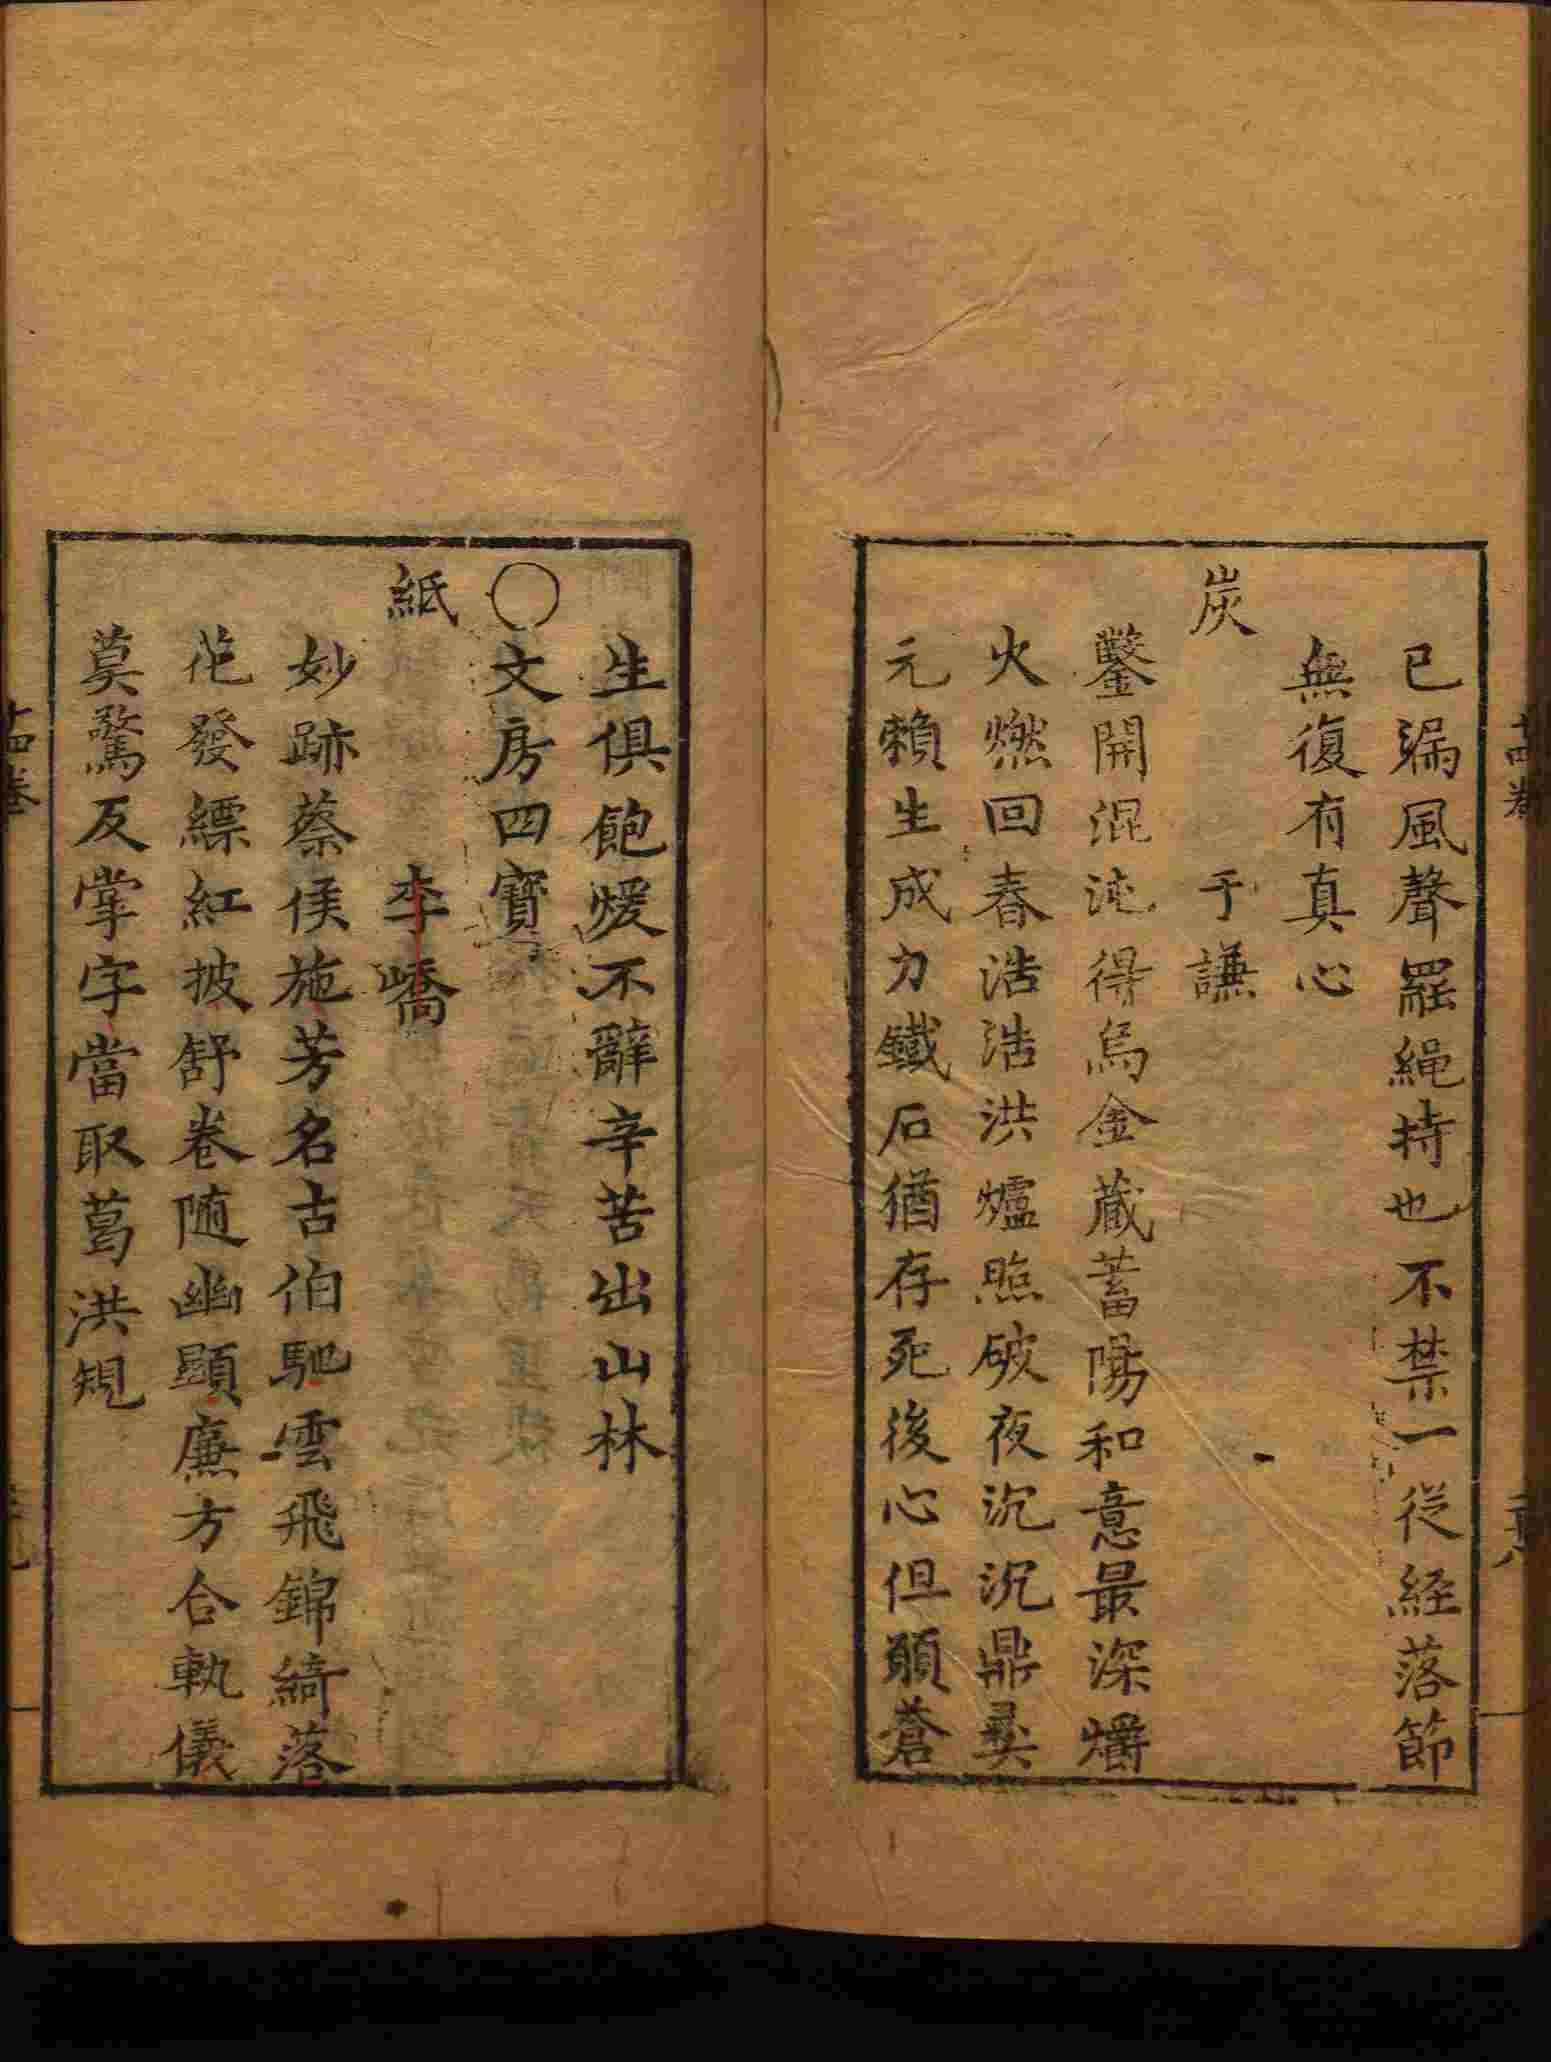 已漏風聲罷繩持也不禁一從経落節
無復有真心
炭
于謙
鑿開混沌得烏金蔵蓄陽和意最深爝
火燃回春浩浩洪爐照破夜沉沉鼎彝
元賴生成力鐵石猶存死後心但願蒼
生俱飽煖不辭辛苦出山林
○文房四寳
紙
李嶠
妙跡蔡侯施芳名古伯馳雲飛錦綺落
花發縹紅披舒卷随幽顯廉方合軌儀
莫驚反掌字當取葛洪規
十四卷
十四卷